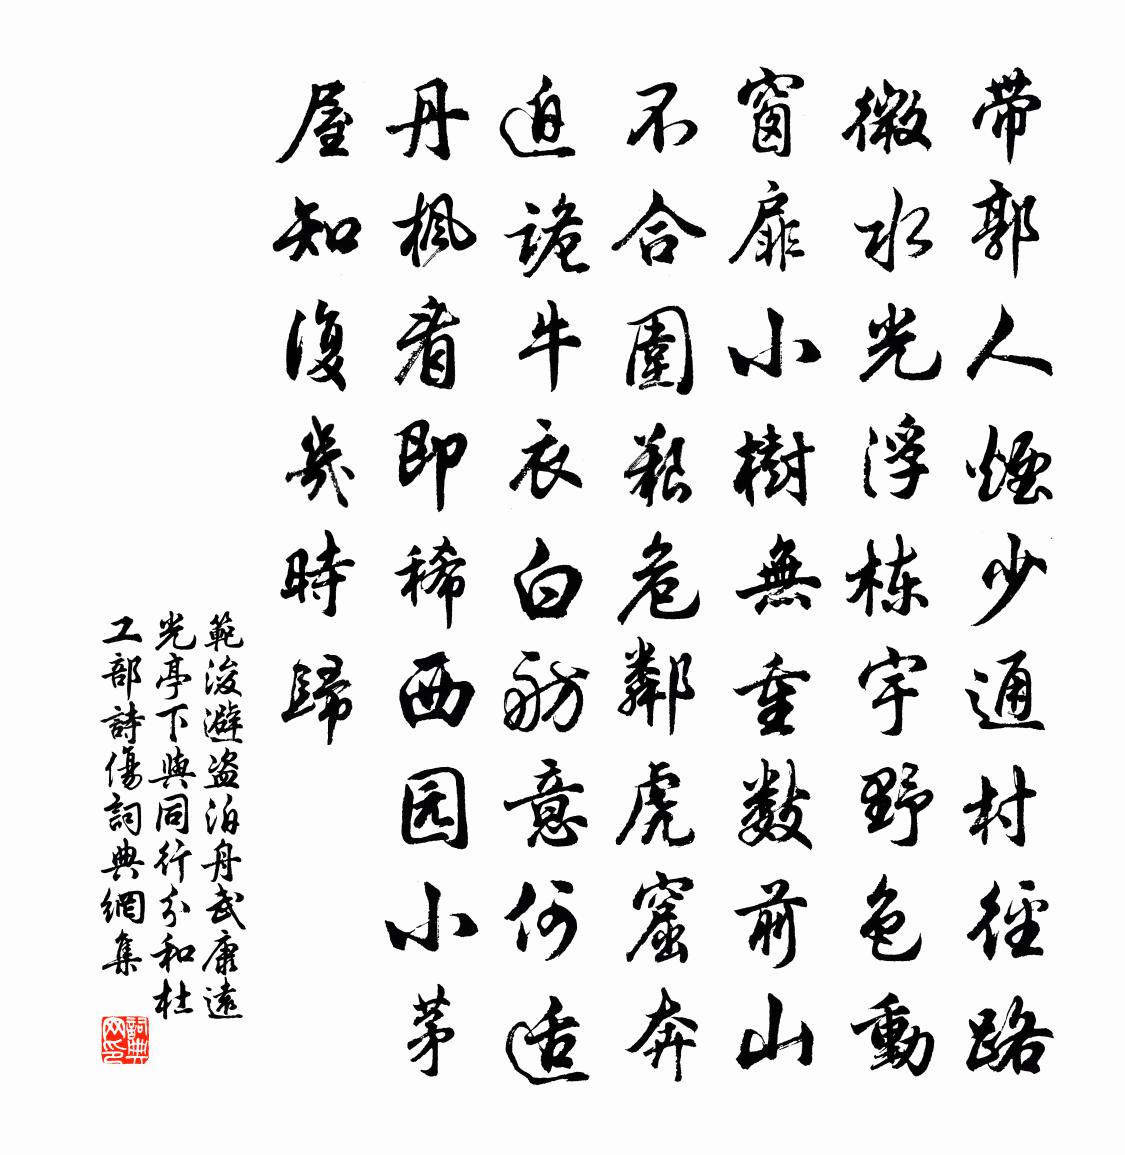 带郭人煙少通村徑路
微水光浮栋宇野色動
窗扉小樹無重數前山
不合圍艱危鄰虎窟奔
迫詭牛衣白舫意何适
丹楓看即稀西园小茅
屋知復幾時歸
範浚避盗泊舟武康遠
光亭下與同行分和杜
工部詩傷詞典網集
詞典网印